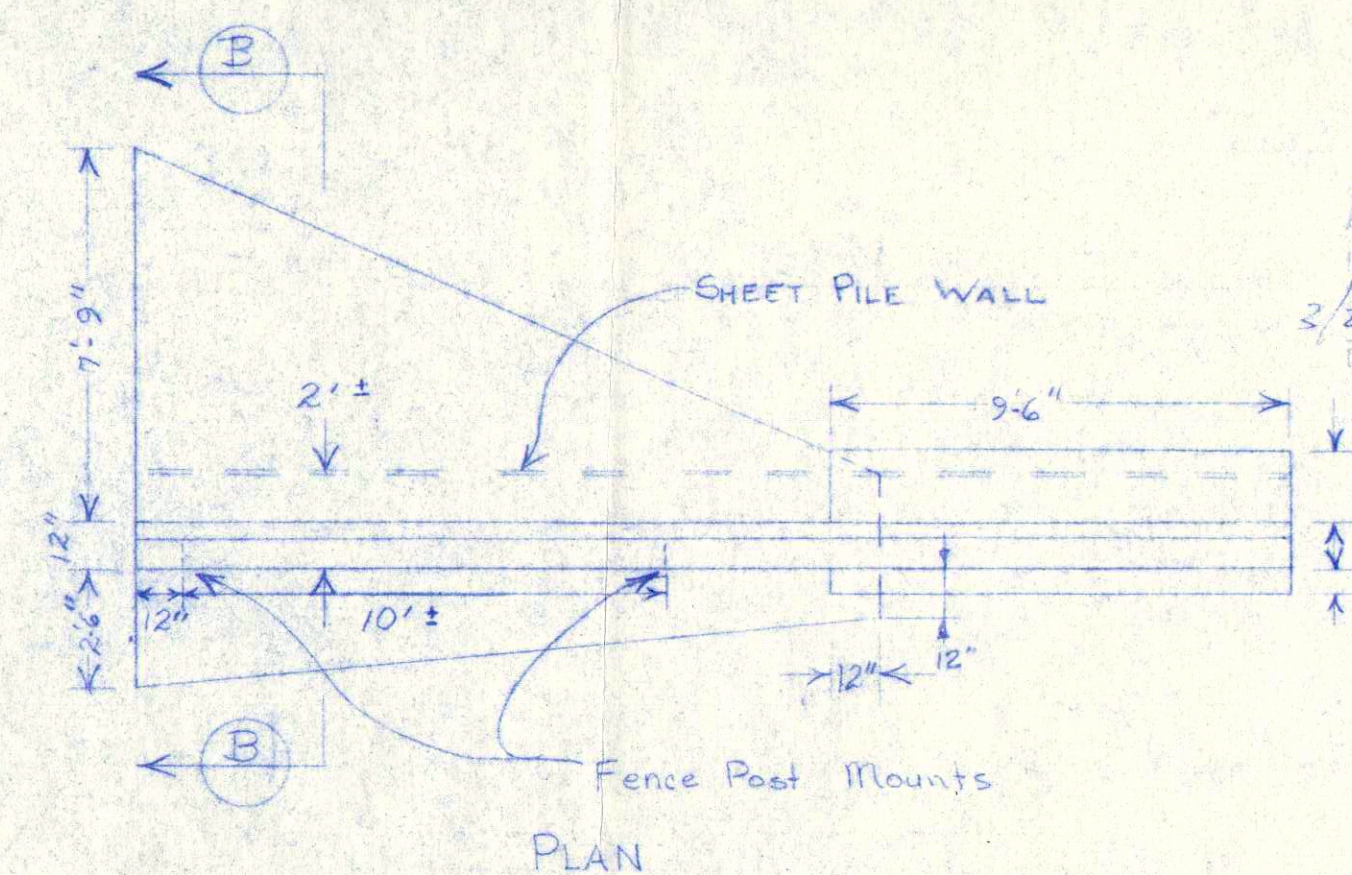 B
7'-9"
SHEET PILE WALL
2' ±
9'-6"
12"
2'-6"
12"
10' ±
12"
12"
B
Fence Post Mounts
PLAN